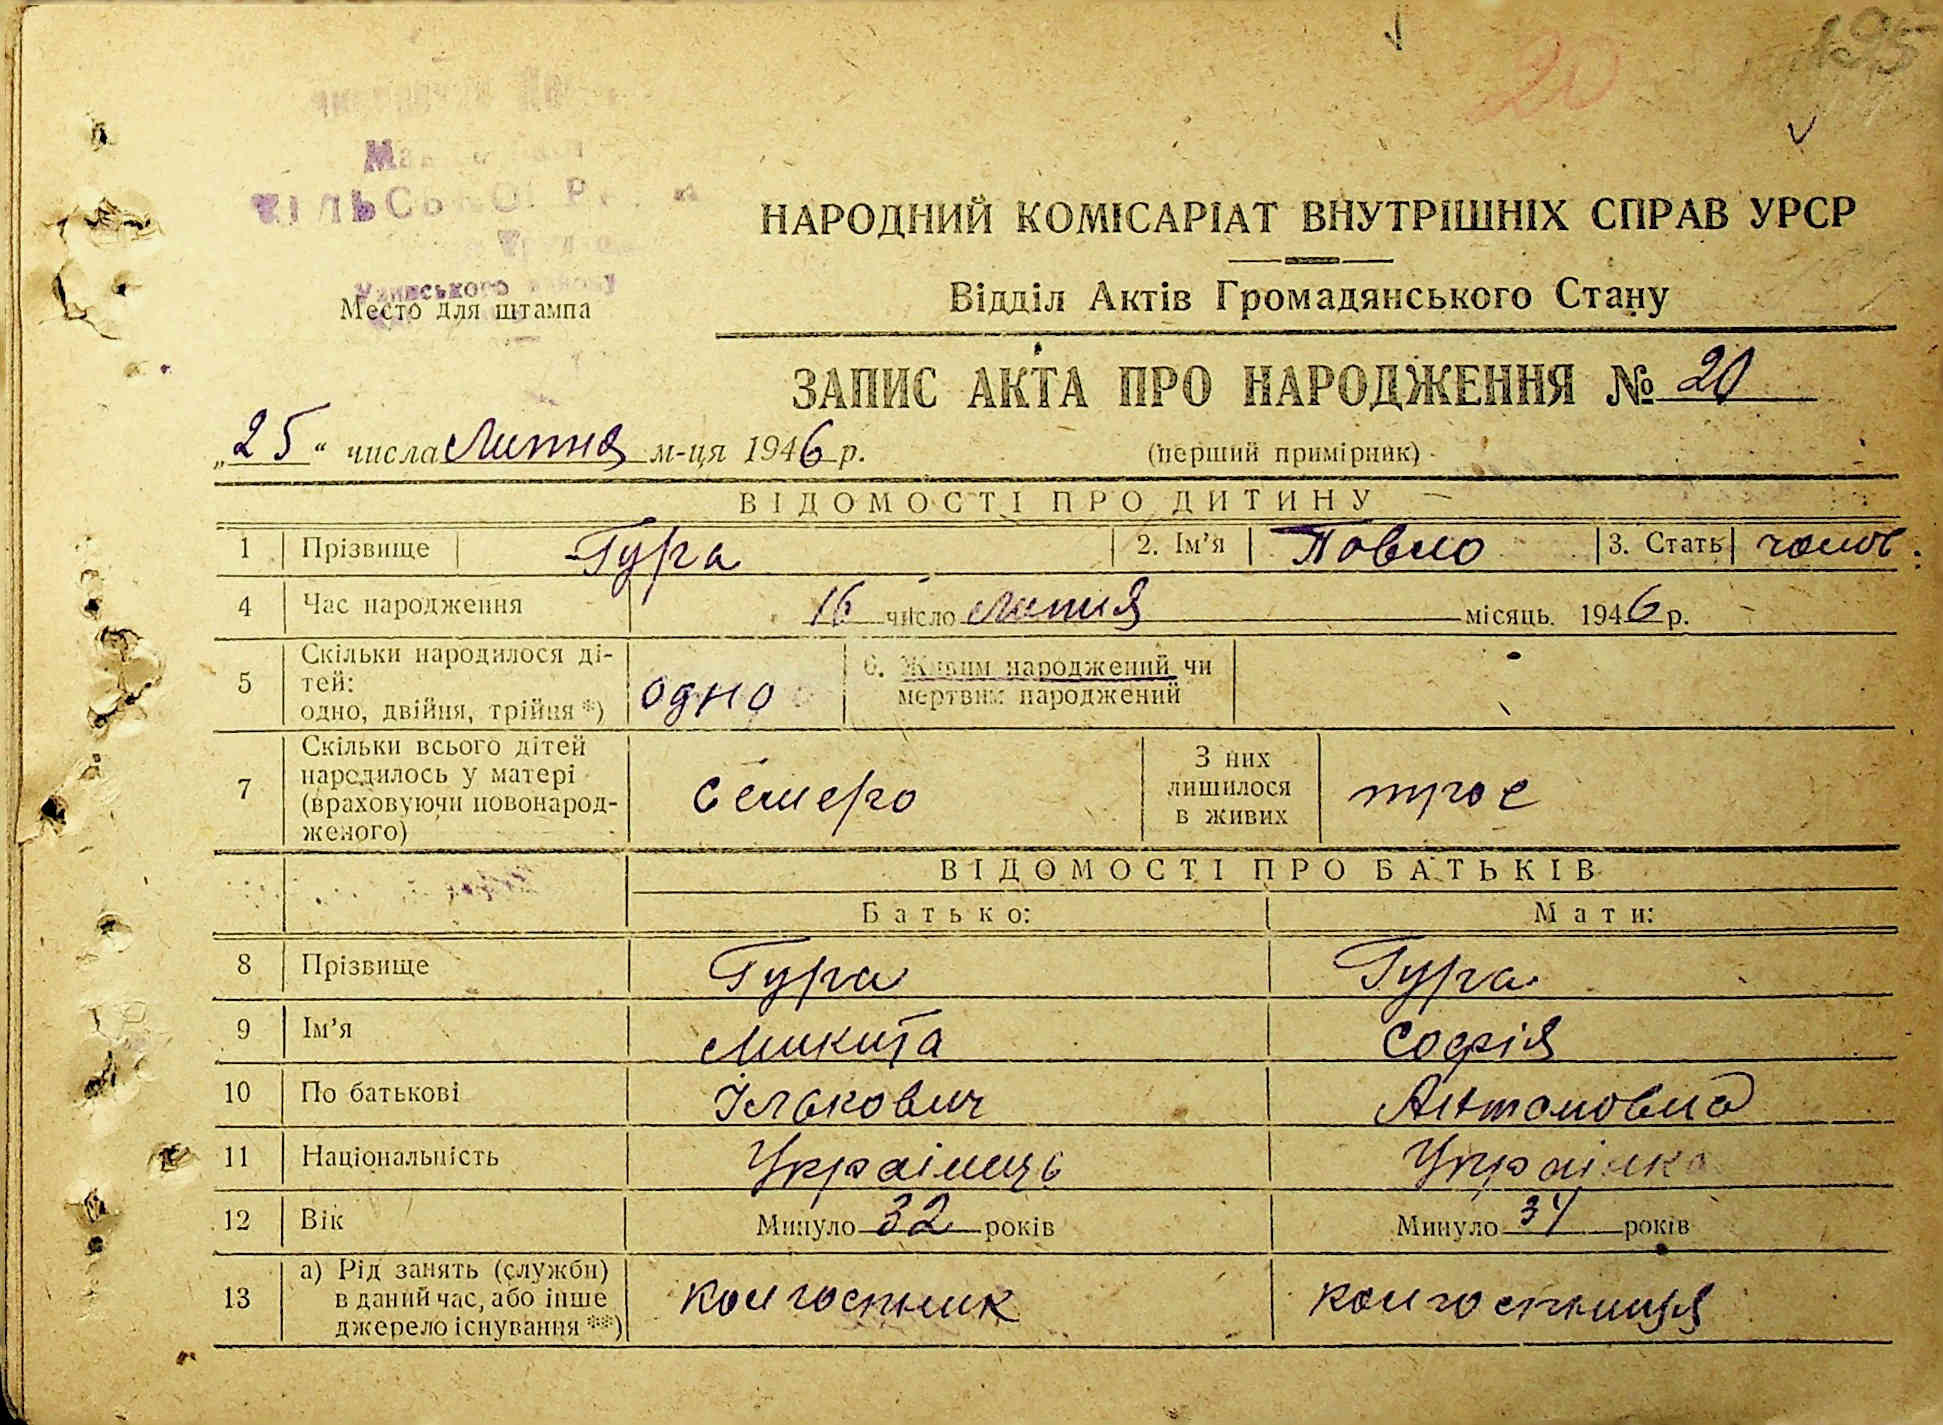 20
НАРОДНИЙ КОМІСАРІАТ ВНУТРІШНІХ СПРАВ УРСР
Узинського
Место для штампа
Відділ Актів Громадянського Стану
ЗАПИС АКТА ПРО НАРОДЖЕННЯ № 20
„25“ числа Липня м-ця 1946 р.
(перший примірник)
ВІДОМОСТІ ПРО ДИТИНУ
1 Прізвище Гура 2. Ім’я Павло 3. Стать чолов.
4 Час народження 16 число липня місяць 1946 р.
5 Скільки народилося ді-
тей:
одно, двійня, трійня *) одно
6. Живим народжений чи
мертвим народжений
7 Скільки всього дітей
народилось у матері
(враховуючи новонарод-
женого) семеро
З них
лишилося
в живих троє
ВІДОМОСТІ ПРО БАТЬКІВ
Батько: Мати:
8 Прізвище Гура Гура
9 Ім’я Микита Софія
10 По батькові Ількович Антоновна
11 Національність Українець Українка
12 Вік Минуло 32 років Минуло 34 років
13 а) Рід занять (служби)
в даний час, або інше
джерело існування **) колгоспник колгоспниця